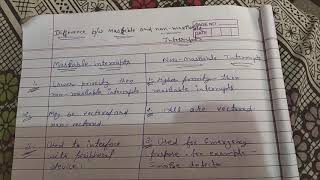 Difference b/w Maskable and non-maskable
Interrupts
PAGE NO.
DATE
Maskable interrupts
Non-maskable Interrupts
1. Lower priority then
non-maskable interrupts
1. Higher priority then
maskable interrupts
2. May be vectored or
non-vectored.
2. All are vectored.
3. Used to interface
with peripheral
device.
3. Used for Emergency
purpose. for example
smoke detector